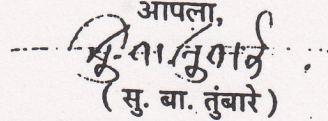 आपला,
( सु. बा. तुंबारे )